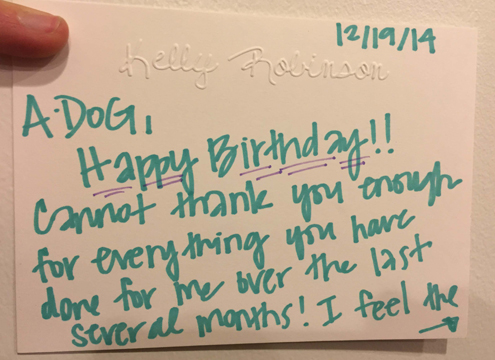 12/19/14
Kelly Robinson
A·DOG,
Happy Birthday!!
Cannot thank you enough
for everything you have
done for me over the last
several months! I feel the
→